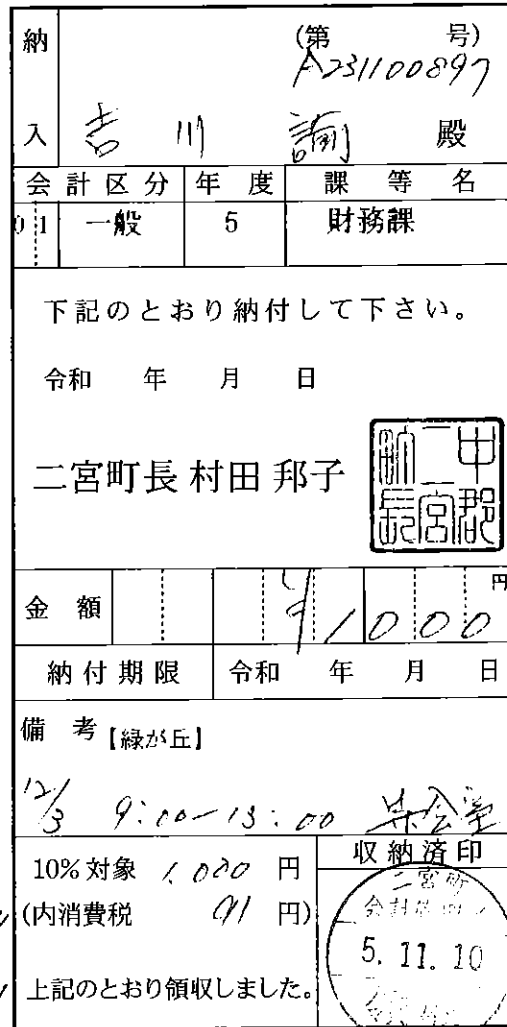 納入
(第 号)
A231100897
吉川 諭 殿
会計区分 年度 課等名
01 一般 5 財務課
下記のとおり納付して下さい。
令和 年 月 日
二宮町長 村田 邦子
中郡二宮町長
金額 ¥1000円
納付期限 令和 年 月 日
備考【緑が丘】
12/3 9:00-13:00 集会室
10%対象 1,000 円
(内消費税 91 円)
上記のとおり領収しました。
収納済印
二宮町
5. 11. 10